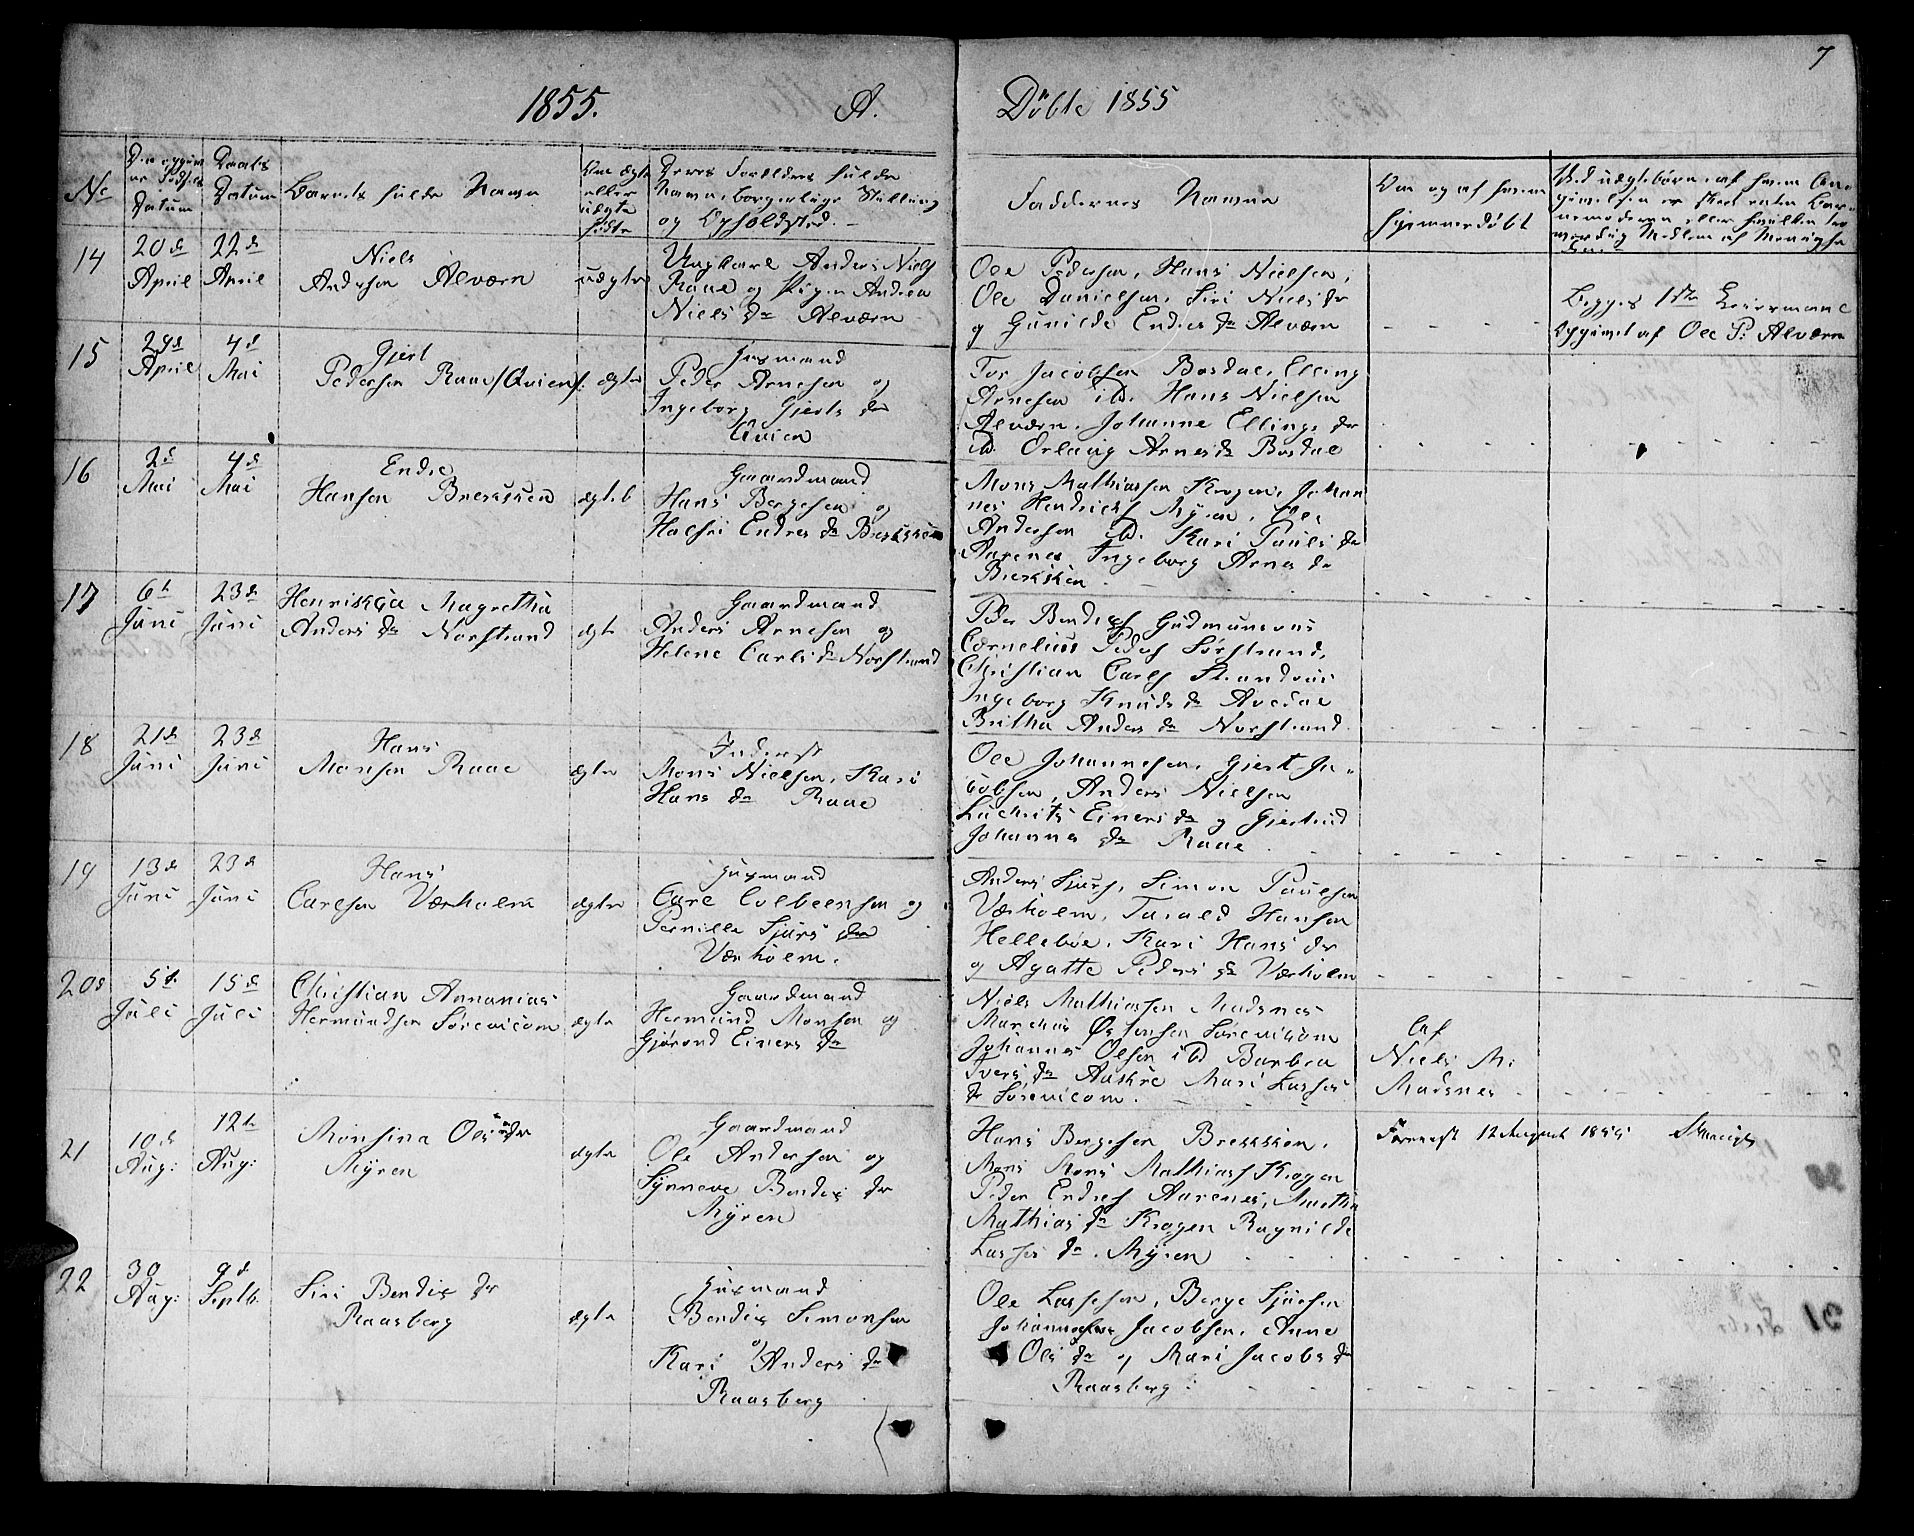 1855. A.
Døbte 1855
7
No
Datum
Daabs
Datum
Barnets fulde Navn
Om ægte
eller
uægte
født
Deres Forældres fulde
Navn, borgerlige Stilling
og Opholdsted.
Faddernes Navne
Om og af hvem
hjemmedøbt
14
20de
April
22de
April
Niels
Andersen Alværn
uægte
Ungkarl Anders Niels
Raae og Pigen Andrea
Niels dr Alværn
Ole Pedersen, Hans Nielsen,
Ole Danielsen, Siri Niels dr
og Gunilde Endres dr Alværn
Begges 1ste Leiermaal
Opgivet af Ole P: Alværn
15
29de
April
4de
Mai
Gjert
Pedersen Raae /Qvien/
ægte
Husmand
Peder Arnesen og
Ingeborg Gjerts dr
Qvien
Tor Jacobsen Bosdal, Elling
Arnesen ibd. Hans Nielsen
Alværn, Johanne Ellings dr
ibd. Orlaug Arnes dr Bosdal
16
2de
Mai
4de
Mai
Endre
Hansen Breksken
ægteb
Gaardmand
Hans Bergesen og
Endres dr Breksken
Mons Mathiassen Krogen, Johan
nes Hendriks Myren, Ole
Andersen ibd. Kari Pauls dr
Aarenes Ingeborg Arnes dr
Breksken
17
6te
Juni
23de
Juni
Henrikka Magretha
Anders dr Norstrand
ægte
Gaardmand
Anders Arnesen og
Helene Carls dr Norstrand
Peder Bendix
Cornelius Peders Sørstrand,
Christian Carls
Ingeborg Knuds dr Aredal
Britha Anders dr Norstrand.
18
21de
Juni
23de
Juni
Hans
Monsen Raae
ægte
Inderst
Mons Nielsen, Kari
Hans dr Raae
Ole Johannesen, Gjert Ja-
cobsen, Anders Nielsen
Einers dr og Gjertrud
Johannes dr Raae
19
13de
Juni
23de
Juni
Hans
Carlsen Værholm
ægte
Husmand
Carl Colbeensen og
Pernille Sjurs dr
Værholm.
Anders Sjurs, Simon Paulsen
Værholm, Tarald Hansen
Hellebøe, Kari Hans dr
og Agatte Peders dr Værholm
20
5te
Juli
15de
Juli
Christian Annanias
Hermundsen Sørevicom
ægte
Gaardmand
Hermund Monsen og
Gjørond Einers dr
Niels Mathiasen Madsnes
Johannes Olsen ibd Barbra
Ivers dr Mari Lasses
dr Sørevicom.
af
Niels M:
Madsnes
21
10de
Aug:
12te
Aug:
Monsina Ols dr
Myren
ægte
Gaardmand
Ole Andersen og
Synneve Bendix dr
Myren
Hans Bergesen Breksken,
Mons Mons Mathiass Krogen
Peder Endres Aarenes, Martha
Mathias dr Krogen Ragnilde
Lasses dr. Myren
12 August 1855
22
30
Aug:
9de
Septb.
Siri Bendix dr
Raasberg
ægte
Husmand
Bendix Simonsen
og
Kari Anders dr
Raasberg
Ole Lassesen, Berge Sjursen
Johannesen Jacobsen, Anne
Ols dr og Mari Jacobs dr
Raasberg